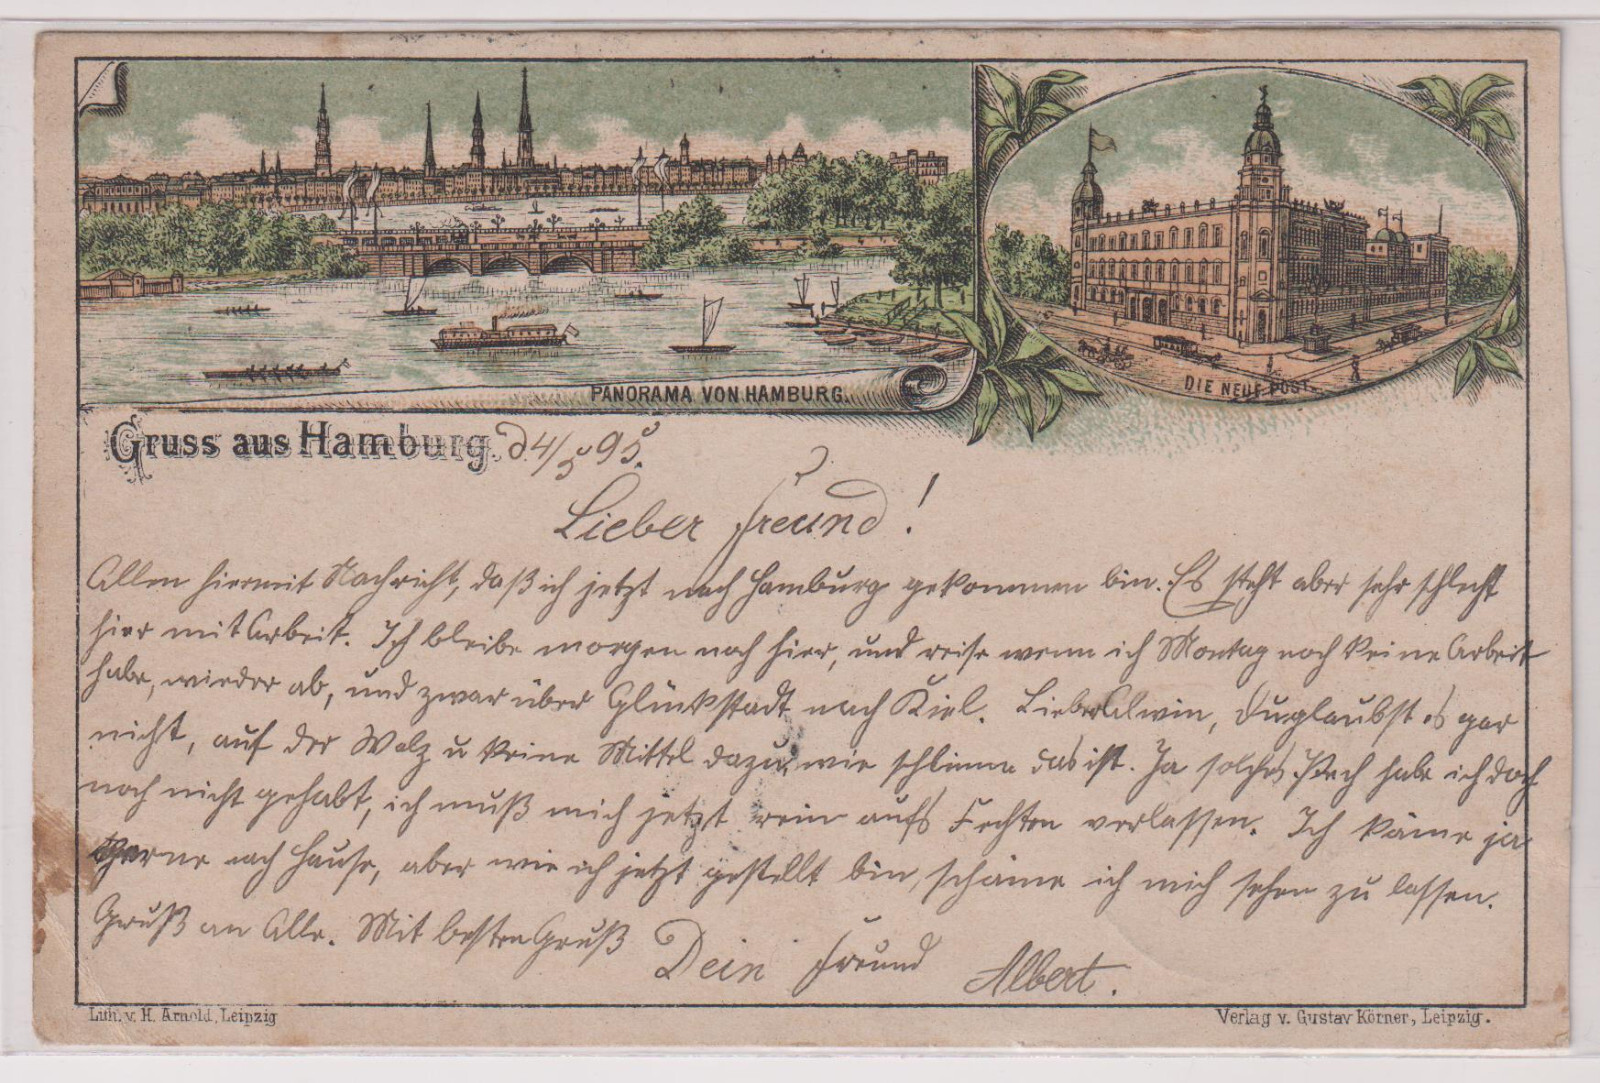 PANORAMA VON HAMBURG.
DIE NEUE POST.
Gruss aus Hamburg. d 4/5 95.
Lieber Freund!
Allen hiermit Nachricht, daß ich jetzt nach Hamburg gekommen bin. Es steht aber sehr schlecht
hier mit Arbeit. Ich bleibe morgen noch hier, und reise wenn ich Montag noch keine Arbeit
habe, wieder ab, und zwar über Glückstadt nach Kiel. Lieber Alwin, Du glaubst es gar
nicht, auf der Walz u keine Mittel dazu, wie schlimm das ist. Ja solches Pech habe ich doch
noch nicht gehabt, ich muß mich jetzt rein aufs Fechten verlassen. Ich käme ja
gerne nach Hause, aber wie ich jetzt gestellt bin, schäme ich mich sehen zu lassen.
Gruß an Alle. Mit besten Gruß Dein Freund Albert.
Lith. v. H. Arnold, Leipzig
Verlag v. Gustav Körner, Leipzig.